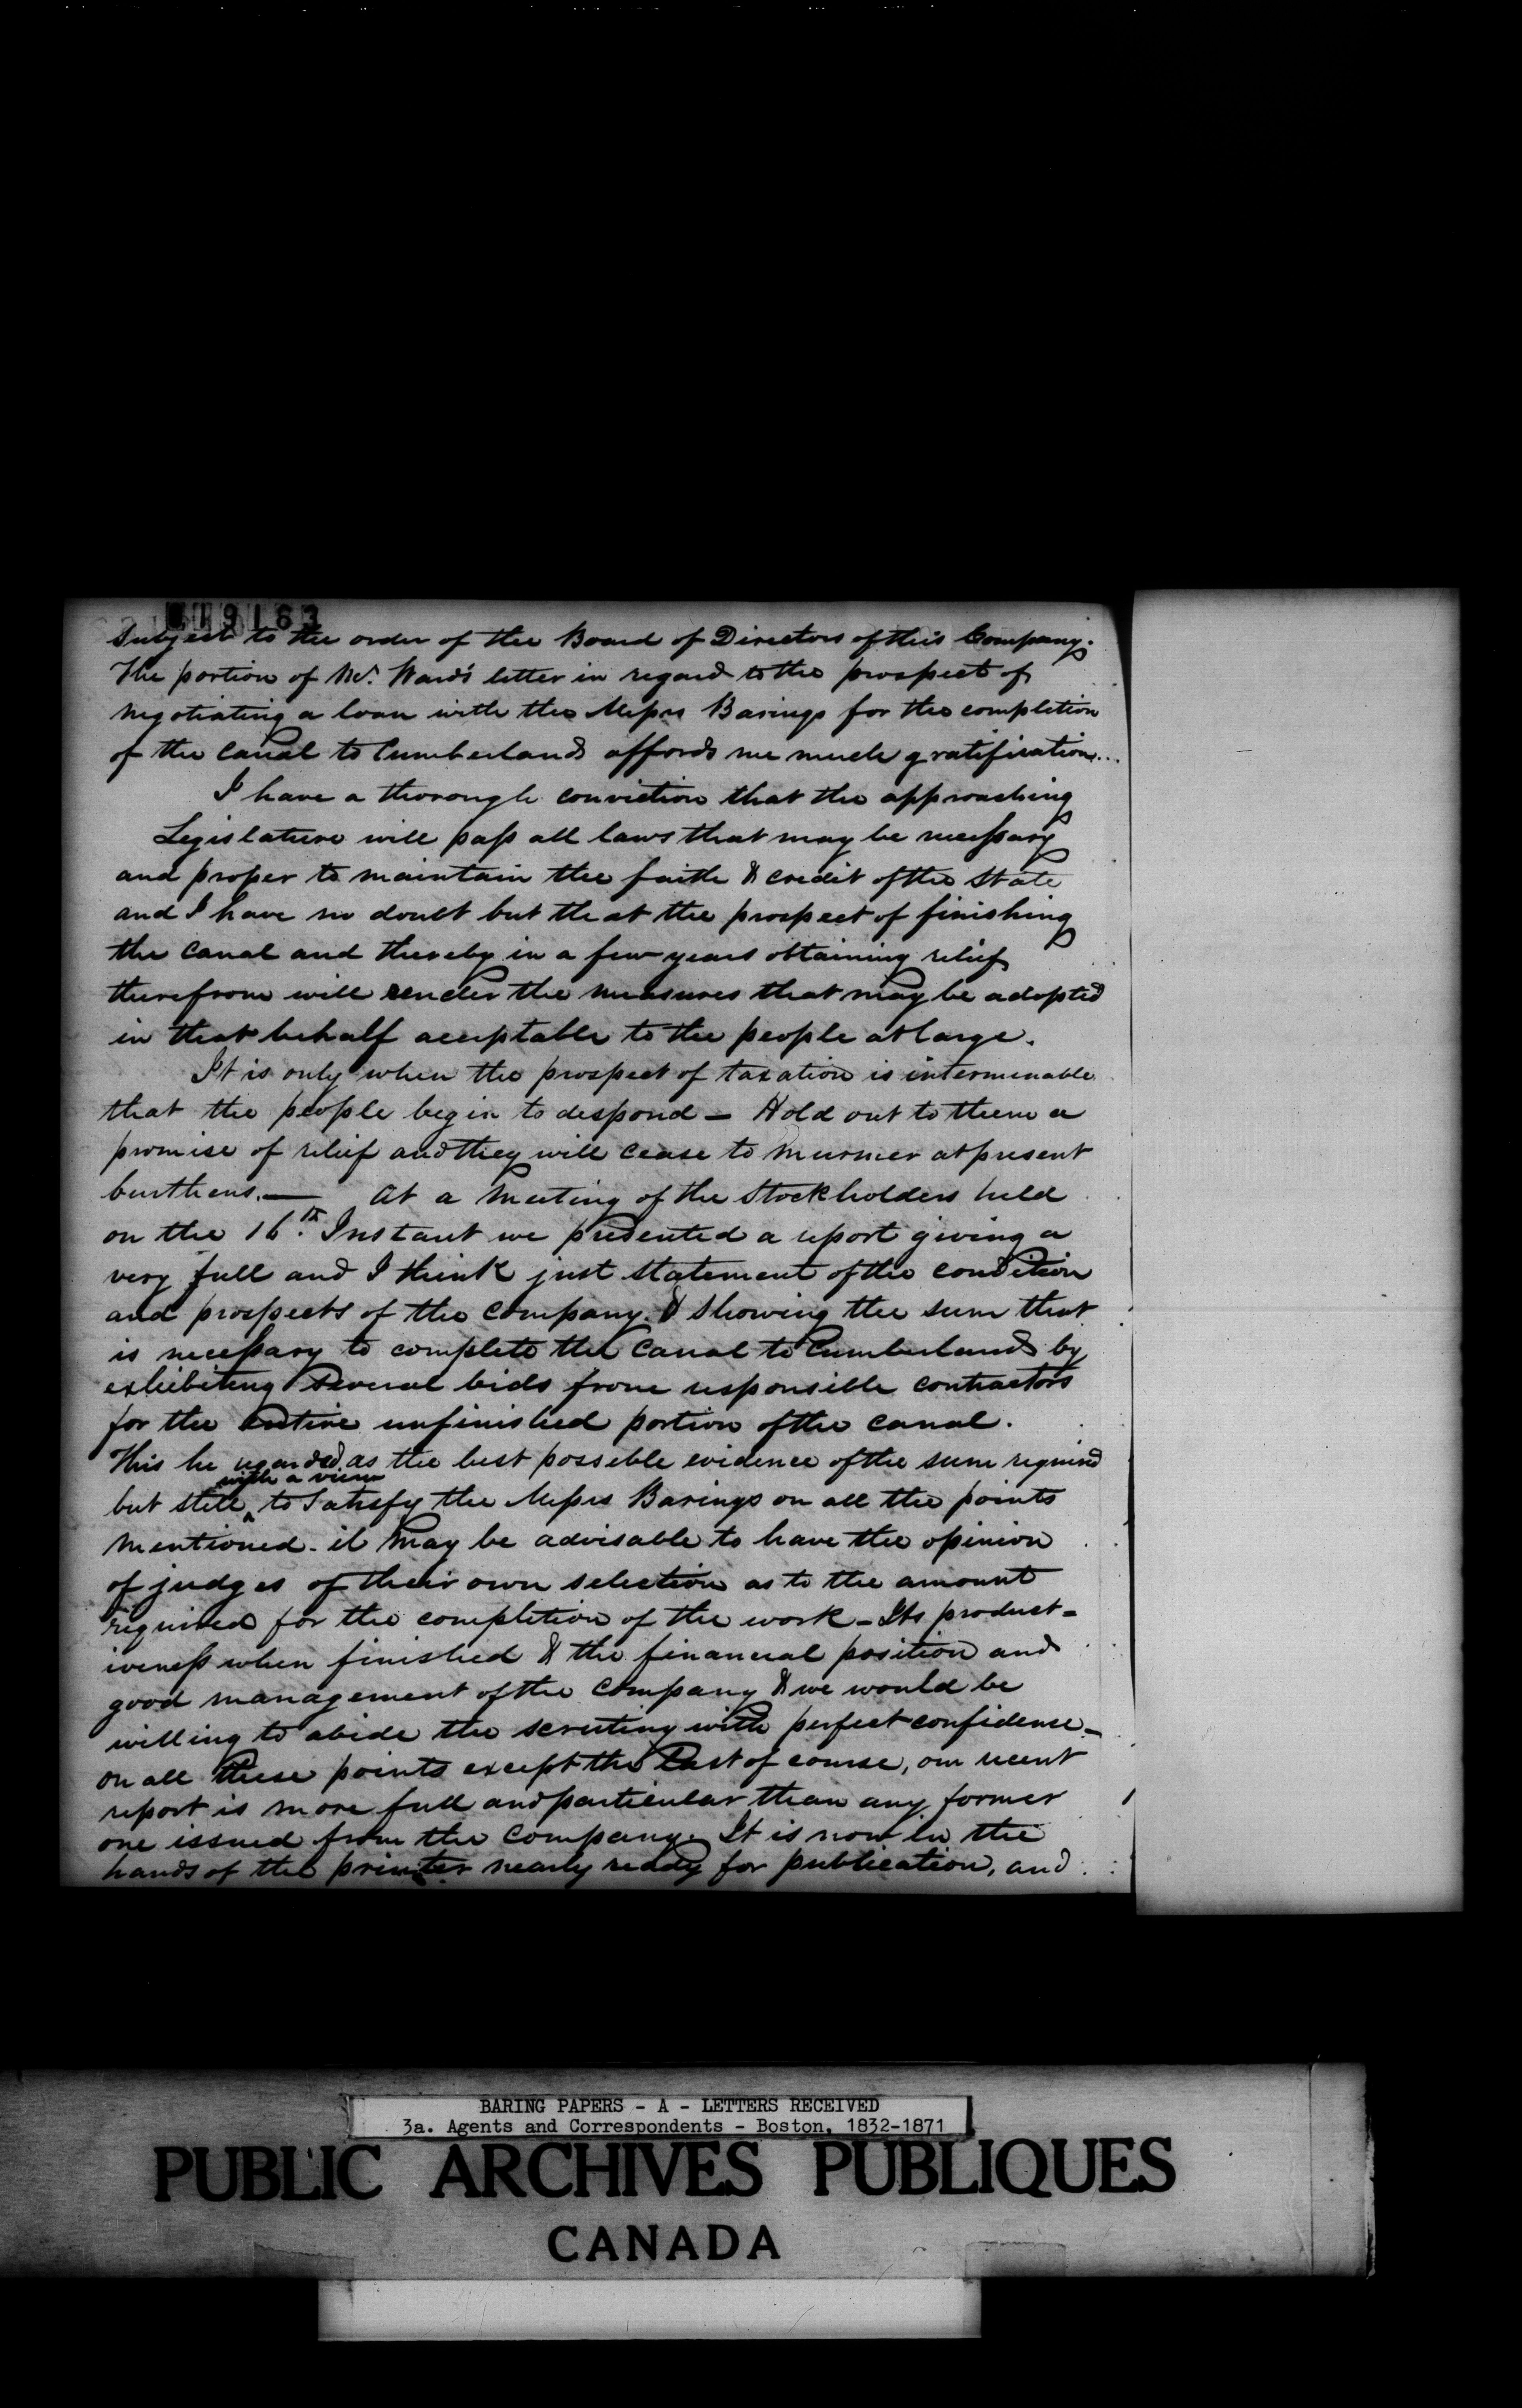 19163
subject to the order of the Board of Directors of this Company.
The portion of Mr. Ward's letter in regard to the prospect of
negotiating a loan with the Messrs Barings for the completion
of the Canal to Cumberland affords me much gratification...
I have a thorough conviction that the approaching
Legislature will pass all laws that may be necessary
and proper to maintain the faith & credit of the State
and I have no doubt but that the prospect of finishing
the Canal and thereby in a few years obtaining relief
therefrom will render the measures that may be adopted
in that behalf acceptable to the people at large.
It is only when the prospect of taxation is intermenable
that the people begin to despond — Hold out to them a
promise of relief and they will cease to murmer at present
burthens. — At a meeting of the Stockholders held
on the 16th. Instant we presented a report giving a
very full and I think just statement of the condition
and prospects of the Company. & showing the sum that
is necessary to complete the Canal to Cumberland by
exhibiting several bids from responsible contractors
for the entire unfinished portion of the canal.
This he regarded as the best possible evidence of the sum required
with a view
but still ^ to satisfy the Messrs Barings on all the points
mentioned - it may be advisable to have the opinion
of judges of their own selection as to the amount
required for the completion of the work - Its product=
iveness when finished & the financial position and
good management of the Company & we would be
willing to abide the scrutiny with perfect confidence -
on all these points except the last of course, our recent
report is more full and particular than any former
one issued from the Company. It is now in the
hands of the printer nearly ready for publication, and
BARING PAPERS - A - LETTERS RECEIVED
3a. Agents and Correspondents - Boston, 1832-1871
PUBLIC ARCHIVES PUBLIQUES
CANADA